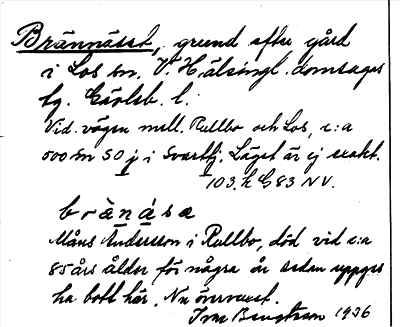 Brännäset, grund efter gård
i Los sn. V. Hälsingl. domsagas
tg. Gävleb. l.
Vid vägen mell. Rullbo och Los, c:a
500 m SO j i Svartfj. Läget är ej exakt.
103. h G83 NV.
brànása
Måns Andersson i Rullbo, död vid c:a
85 års ålder för några år sedan uppges
ha bott här. Nu övervuxet.
Bengtsson 1936